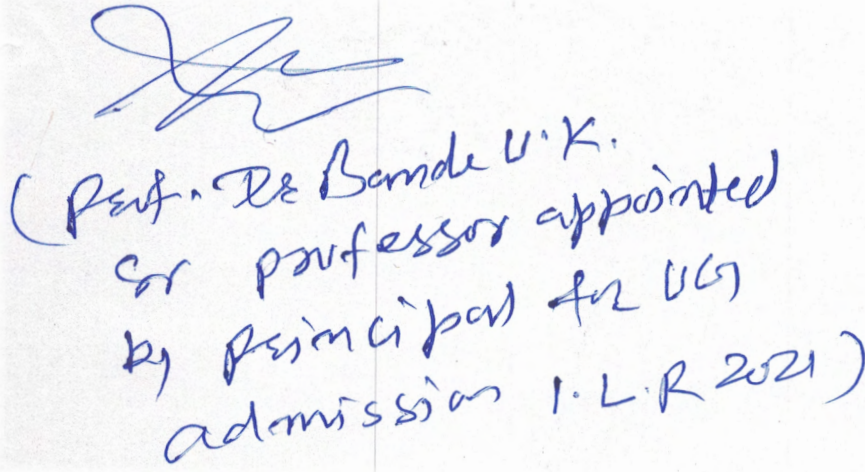 (Prof. Dr Bamde U.K.
Sr professor appointed
by principal for UG
admission I.L.R 2021)